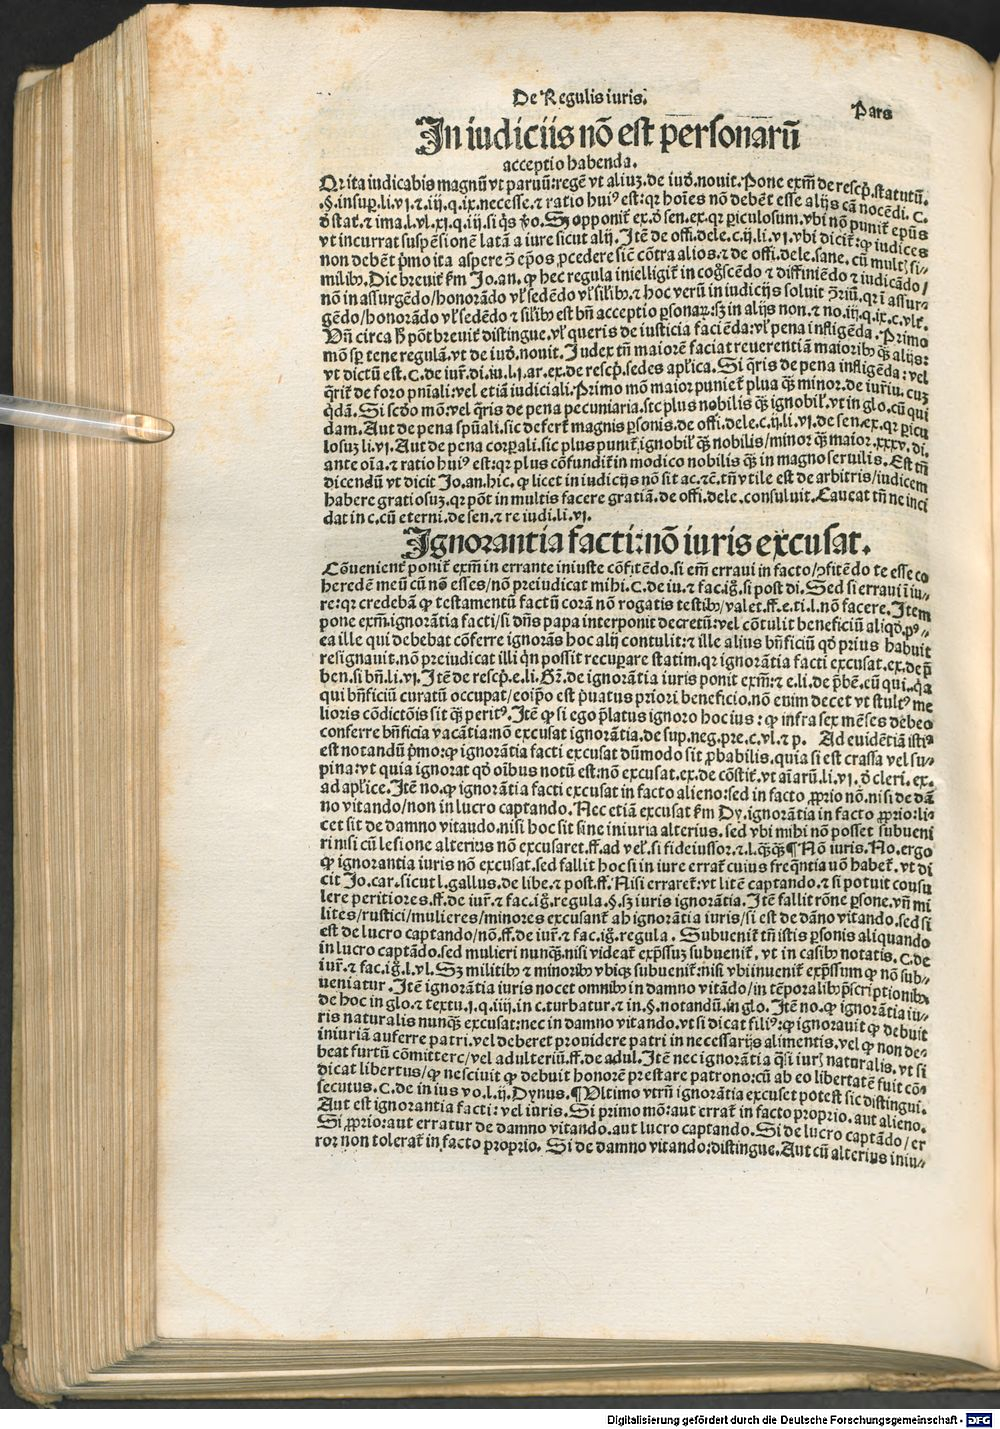 De Regulis iuris.
Pars
In iudiciis nō est personarū
acceptio habenda.
Qr ita iudicabis magnū vt paruū:regē vt aliuꝫ.de iud̄.nouit.Pone exm̄ de rescp̄.statutū.
.§.insup̲.li.vi.⁊ iij.q.ix.necesse.⁊ ratio huiꝰ est:qr hoīes nō debēt esse alijs cān nocēdi. C.
d̄ stat̄.⁊ ima.l.vl.xi.q.iij.si q̄s v̄o. Sꝫ opponit̄ ex.d̄ sen.ex.qr p̲iculosum.vbi nō punit̄ ep̄us
vt incurrat suspēsionē latā a iure sicut alij. Itē de offi.dele.c.ij.li.vi.vbi dicit̄:ꝙ iudices
non debēt p̄mo ita aspere ꝯ ep̄os ꝓcedere siē cōtra alios.⁊ de offi.dele.sane.cū mult̄ si-
milibꝰ. Dic breuit̄ fm̄ Jo.an. ꝙ hec regula intelligit̄ in cog̃scēdo ⁊ diffiniēdo ⁊ iudicādo/
nō in assurgēdo/honorādo vl̓ sedēdo vl̓ sil̓ibꝰ.⁊ hoc verū in iudicijs soluit ꝯ̄riū.qr ī assur-
gēdo/honorādo vl̓ sedēdo ⁊ sil̓ibꝰ est bn̄ acceptio p̲sonaꝝ:sꝫ in alijs non.⁊ no.iij.q.ix.c.vlt̄.
Vn̄ circa h̄ pōt breuit̄ distingue.vl̓ queris de iusticia faciēda:vl̓ pena infligēda. Primo
mō sp̲ tene regulā.vt de iud̄.nouit. Judex tn̄ maiorē faciat reuerentiā maioribꝰ q̄ꝫ alijs:
vt dictū est. C. de iur̄.di.iu.l.i.ar.ex.de rescp̄.sedes apl̓ica. Si q̄ris de pena infligēda: vel
q̄rit̄ de foro pn̄iali:vel etiā iudiciali. Primo mō maior puniet̄ plua q̄ꝫ minor.de iur̄iu. cuꝫ
q̄dā. Si scd̄o mō:vel q̄ris de pena pecuniaria.sic plus nobilis q̄ꝫ ignobil̓.vt in glo.cū qui
dam. Aut de pena sp̄uali.sic defert̄ magnis p̲sonis.de offi.dele.c.ij.li.vi.de sen.ex.qr p̲icu
losuꝫ li.vi. Aut de pena corp̲ali.sic plus punit̄ ignobil̓ q̄ꝫ nobilis/minor q̄ꝫ maior.xxxv.di.
ante oīa.⁊ ratio huiꝰ est:qr plus cōfundit̄ in modico nobilis q̄ꝫ in magno seruilis. Est tn̄
dicendū vt dicit Jo.an.hic. ꝙ licet in iudicijs nō sit ac.⁊c.tn̄ vtile est de arbitris/iudicem
habere gratiosuꝫ.qr pōt in multis facere gratiā.de offi.dele.consuluit. Caueat tn̄ ne inci
dat in c.cū eterni.de sen.⁊ re iudi.li.vi.
Ignorantia facti:nō iuris excusat.
Cōuenient̄ ponit̄ exm̄ in errante iniuste cōfitēdo.si em̄ erraui in facto/ꝯfitēdo te esse co
heredē meū cū nō esses/nō preiudicat mihi. C. de iu.⁊ fac.ig̃.si post di. Sed si erraui ī iu-
re:qr credebā ꝙ testamentū factū corā nō rogatis testibꝰ/valet.ff.e.ti.l.nō facere. Item
pone exm̄.ignorātia facti/si dn̄s papa interponit decretū:vel cōtulit beneficiū aliqd̄.pꝰ-
ea ille qui debebat cōferre ignorās hoc alij contulit:⁊ ille alius bn̄ficiū qd̄ prius habuit
resignauit.nō preiudicat illi q̄n possit recup̲are statim.qr ignorātia facti excusat.ex.de p̄
ben.si bn̄.li.vi. Itē de rescp̄.e.li. Br̄. de ignorātia iuris ponit exm̄:⁊ e.li.de p̄bē.cū qui.q̄a
qui bn̄ficiū curatū occupat/eoip̄o est p̄uatus priori beneficio.nō enim decet vt stultꝰ me
lioris cōdictōis sit q̄ꝫ peritꝰ. Itē ꝙ si ego p̄latus ignoro hoc ius: ꝙ infra sex mēses debeo
conferre bn̄ficia vacātia:nō excusat ignorātia.de sup.neg.pre.c.vl.⁊ p. Ad euidētiā istiꝰ
est notandū p̄mo:ꝙ ignorātia facti excusat dūmodo sit ꝓbabilis.quia si est crassa vel su-
pina:vt quia ignorat qd̄ oībus notū est:nō excusat.ex.de cōstit̄.vt aīarū.li.vi.d̄ cleri. ex.
ad apl̓ice. Itē no.ꝙ ignorātia facti excusat in facto alieno:sed in facto ꝓprio nō.nisi de dā
no vitando/non in lucro captando. Nec etiā excusat fm̄ Dy.ignorātia in facto ꝓprio:li-
cet sit de damno vitando.nisi hoc sit sine iniuria alterius. sed vbi mihi nō posset subueni
ri nisi cū lesione alterius nō excusaret.ff.ad vel̓.si fideiussor.⁊.l.q̄ꝫq̄ꝫ ¶ Nō iuris. No.ergo
ꝙ ignorantia iuris nō excusat.sed fallit hoc si in iure errat̄ cuius freq̄ntia uō habet̄. vt di
cit Jo.car.sicut l.gallus.de libe.⁊ post.ff. Nisi erraret̄:vt litē captando.⁊ si potuit consu
lere peritiores.ff.de iur̄.⁊ fac.ig̃.regula.§.sꝫ iuris ignorātia. Itē fallit rōne p̲sone.vn̄ mi
lites/rustici/mulieres/minores excusant̄ ab ignorātia iuris/si est de dāno vitando.sed si
est de lucro captando/nō.ff.de iur̄.⁊ fac.ig̃.regula. Subuenit̄ tn̄ istis p̲sonis aliquando
in lucro captādo.sed mulieri nunq̄ꝫ.nisi videat̄ exp̄ssuꝫ subuenit̄. vt in casibꝰ notatis. C. de
iur̄.⁊ fac.ig̃.l.vl. Sꝫ militibꝰ ⁊ minoribꝰ vbiqꝫ subuenit̄.nisi vbi inuenit̄ exp̄ssum ꝙ nō sub-
ueniatur. Itē ignorātia iuris nocet omnibꝰ in damno vitādo/in tēporalibꝰ p̄scriptionibꝰ
de hoc in glo.⁊ textu.i.q.iiij.in c.turbatur.⁊ in.§.notandū.in glo. Itē no.ꝙ ignorātia iu-
ris naturalis nunq̄ꝫ excusat:nec in damno vitando.vt si dicat filiꝰ:ꝙ ignorauit ꝙ debuit
iniuriā auferre patri.vel deberet prouidere patri in necessarijs alimentis.vel ꝙ non de-
beat furtū cōmittere/vel adulteriū.ff.de adul. Itē nec ignorātia q̄si iur̄ naturalis.vt si
dicat libertus/ꝙ nesciuit ꝙ debuit honorē prestare patrono:cū ab eo libertatē fuit cō-
secutus. C. de in ius vo.l.ij. Dynus. ¶ Vltimo vtrū ignorātia excuset potest sic distingui.
Aut est ignorantia facti: vel iuris. Si primo mō:aut errat̄ in facto proprio.aut alieno.
Si ꝓprio:aut erratur de damno vitando.aut lucro captando. Si de lucro captādo/er
ror non tolerat̄ in facto proprio. Si de damno vitando:distingue. Aut cū alterius iniu-
Digitalisierung gefördert durch die Deutsche Forschungsgemeinschaft - DFG